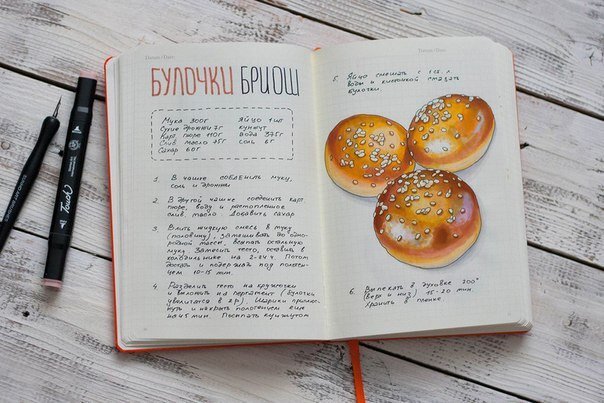 Datum / Date:
БУЛОЧКИ БРИОШ
Мука 300г Яйцо 1шт
Сухие дрожжи 7г кунжут
Карт. пюре 110г вода 375г
Слив. масло 35г соль 6г
Сахар 60г
1. В чашке соединить муку,
соль и дрожжи
2. В другой чашке соединить карт.
пюре, воду и растопленное
слив. масло. Добавить сахар
3. Влить жидкую смесь в муку
(половину), замешивать до одно-
родной массы, всыпать остальную
муку. Замесить тесто, оставить в
холодильнике на 2-24 ч. Потом
достать и подержать под полотен-
цем 10-15 мин.
4. Разделить тесто на кружочки
и выложить на пергамент (булочки
увеличатся в 2р). Шарики приплюс-
нуть и накрыть полотенцем еще
на 45 мин. Посыпать кунжутом
Datum / Date:
5. Яйцо смешать с 1 ст. л.
воды и кисточкой смазать
булочки.
6. Выпекать в духовке 200°
(верх и низ) 15-20 мин.
Хранить в пленке.